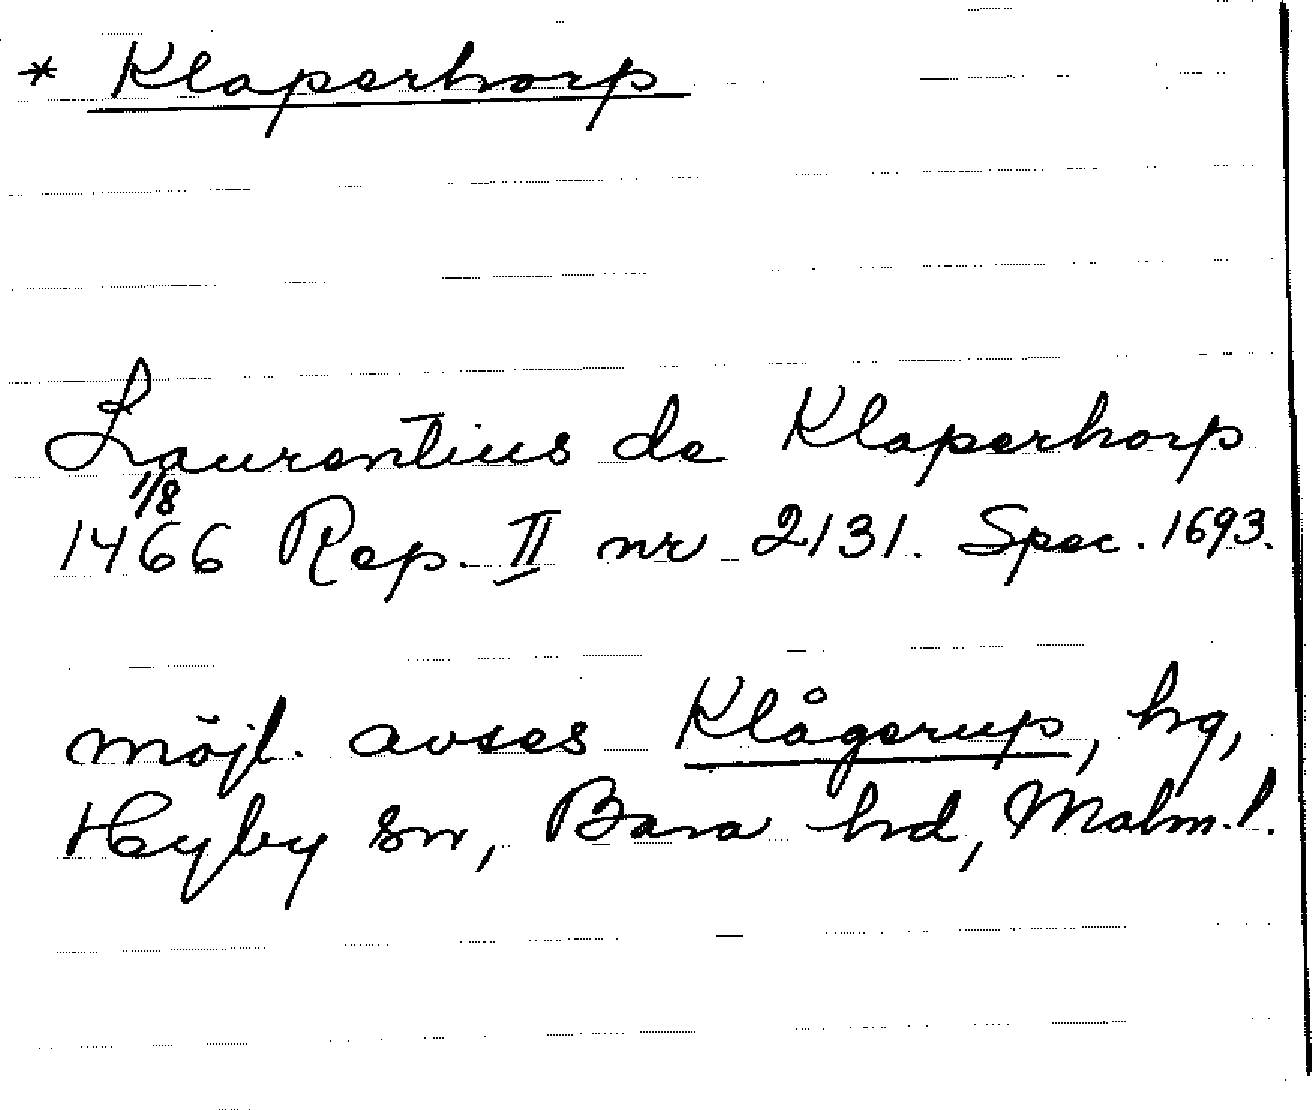 * Klaperhorp
Laurentius de Klaperhorp
1/8
1466 Rep. II nr 2131. Spec. 1693.
möjl. avses Klågerup, hg,
Hyby sn, Bara hd, Malm. l.